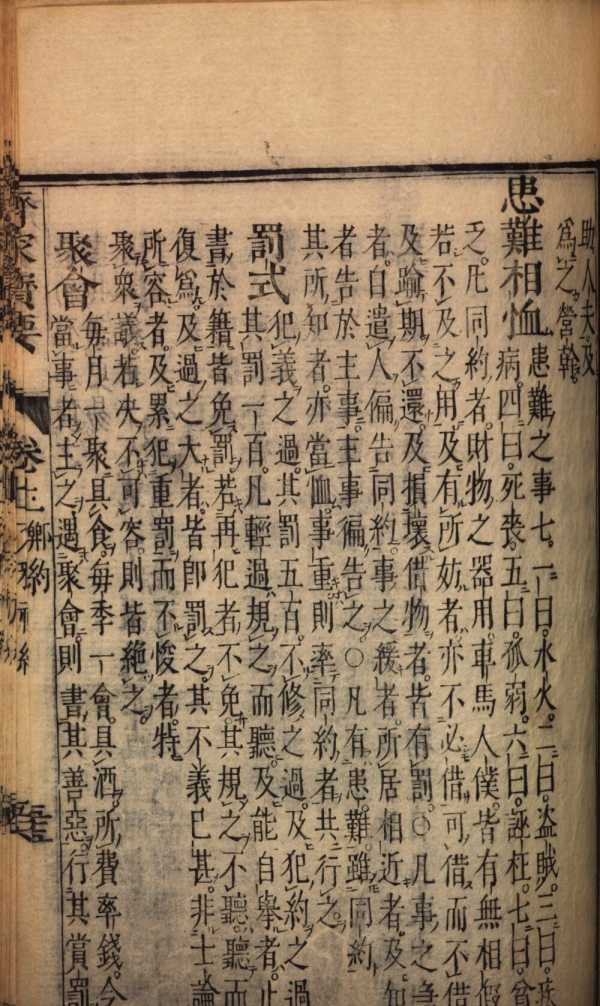 助人夫及
為之營幹
患難相恤 患難之事七。一曰水火。二曰盜賊。三曰疾
病。四曰死喪。五曰孤弱。六曰誣枉。七曰貧
乏。凡同約者。財物之器用。車馬人僕。皆有無相假
若不及之用及有所妨者。亦不必借。可借而不借
及踰期不還。及損壞借物者。皆有罰。○凡事之急
者。自遣人徧告同約。事之緩者。所居相近者。及知
者告於主事。主事徧告之。○凡有患難。雖同約
其所知者。亦當恤。事重則率同約者共行之。
罰式 犯義之過。其罰五百。不修之過。及犯約之過
其罰一百。凡輕過規之而聽。及能自舉者。止
書於籍。皆免罰。若再犯者不免。其規之不聽。聽而
復為。及過之大者。皆即罰之。其不義已甚。非士論
所容者。及累犯重罰而不悛者。特
聚衆議。若決不可容。則皆絶之。
聚會 每月一聚具食。每季一會。具酒。所費率錢。令
當事者主之。遇聚會。則書其善惡。行其賞罰
齊家寶要 卷七 鄉約